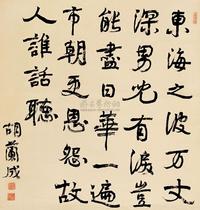 東海之波万丈
深男兒有淚豈
能盡日華一遍
市朝更恩怨故
人誰話聽
胡蘭成